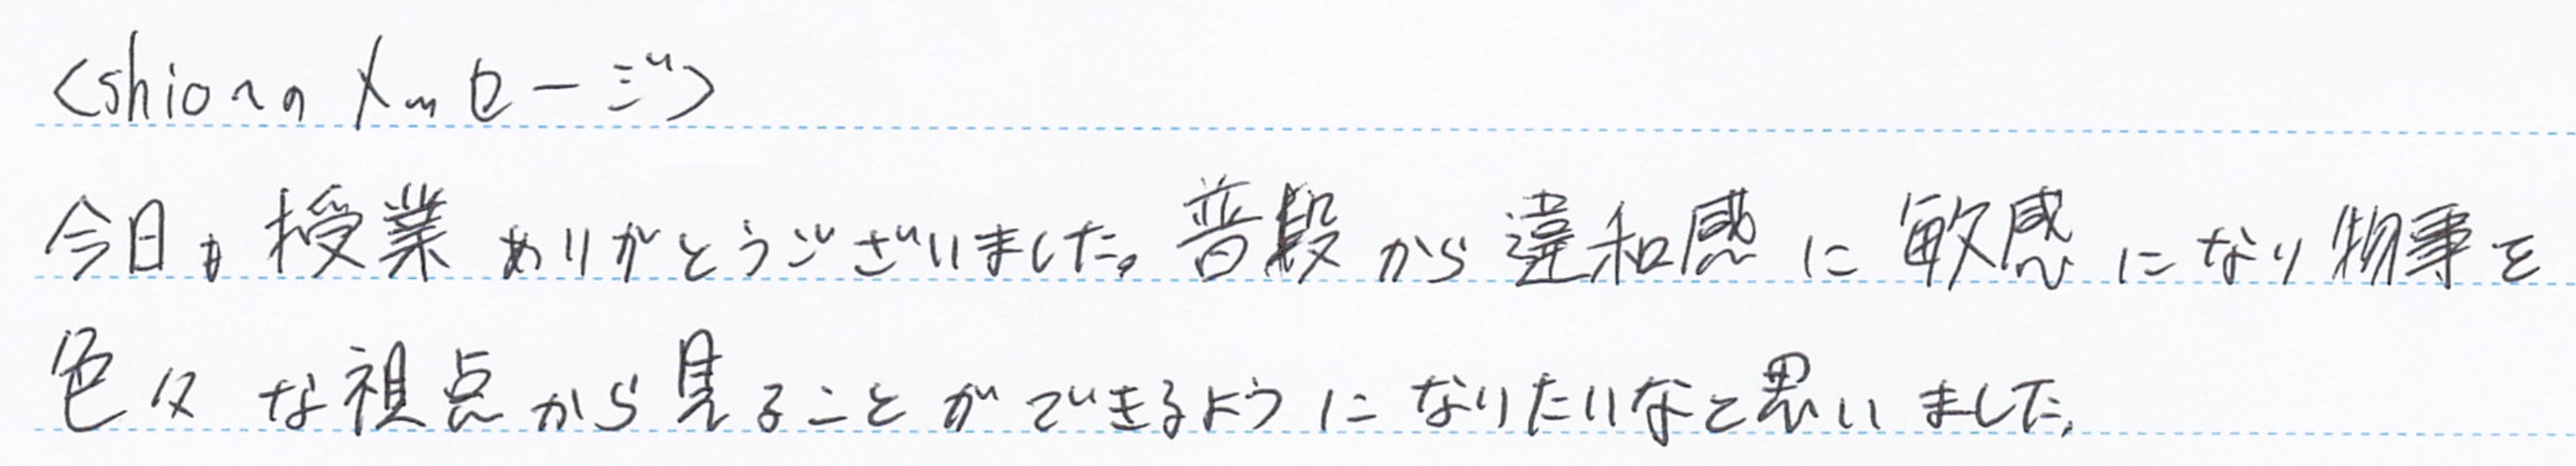 <shioへのメッセージ>
今日も授業ありがとうございました。普段から違和感に敏感になり物事を
色々な視点から見ることができるようになりたいなと思いました。